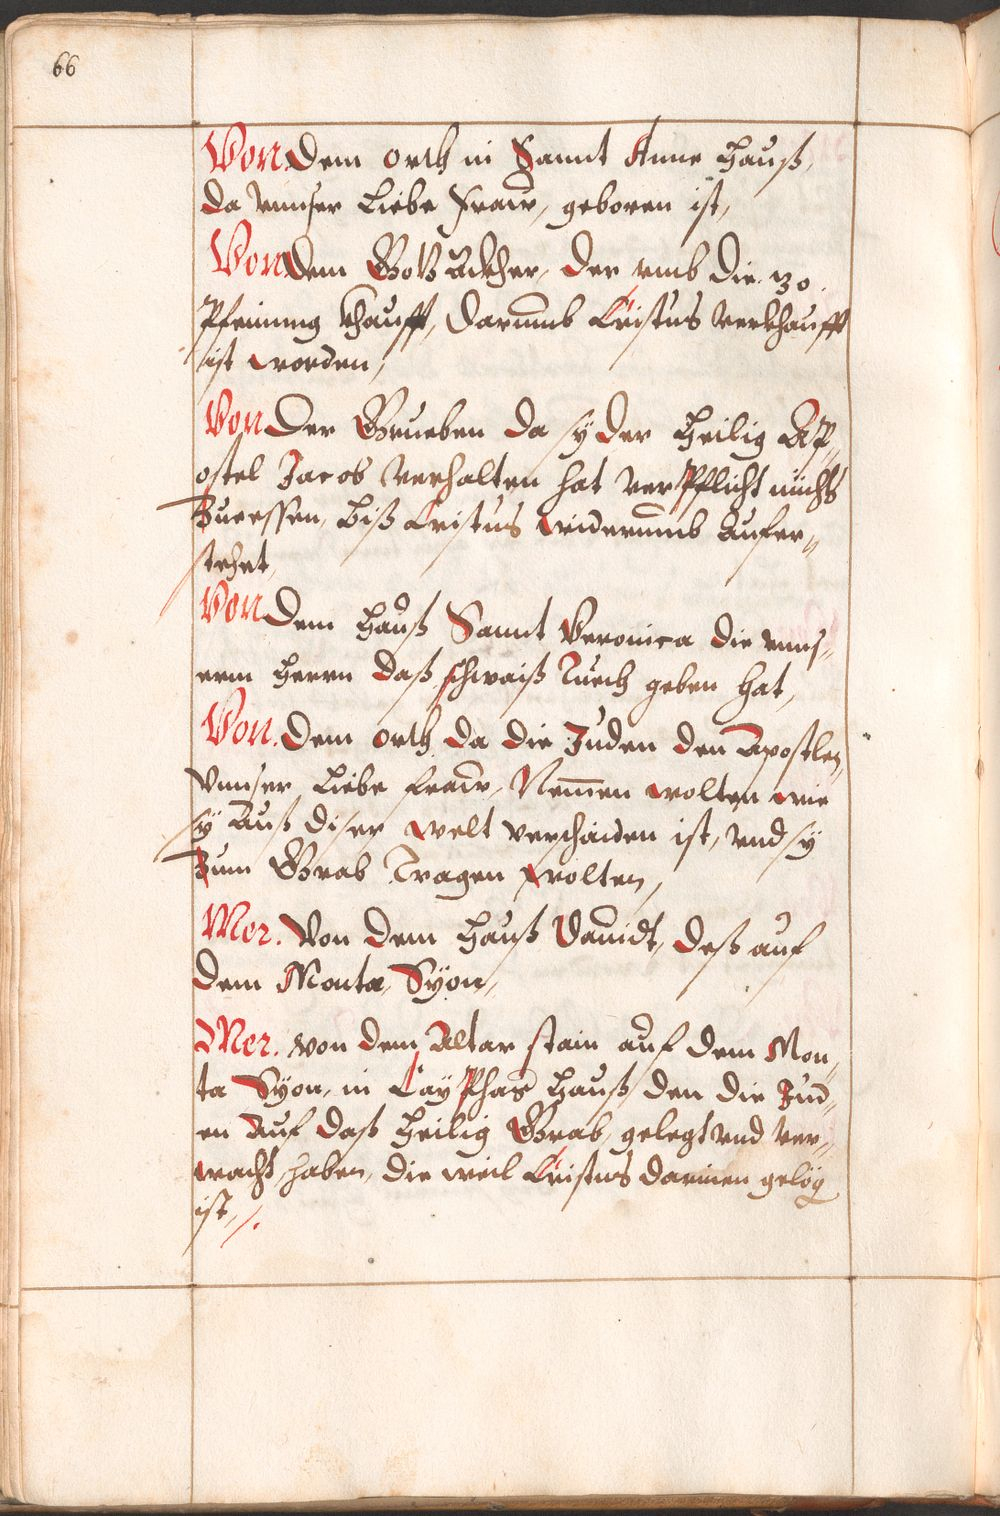 66
Von dem orth in Sannt Anne Hauß,
da vnnser Liebe Fraw, geboren ist,
Von dem Gots Ackher, der vmb die. 30.
Pfening khaufft, darumb Cristus verkhaufft
ist worden,
Von der Grueben da sÿ der Heilig Ap„
ostel Jacob verhalten hat ver Pflicht nichts
Zue essen, biß Cristus widerumb Aufer„
stehet,
Von dem Hauß Sannt Veronica die vnns„
erm Herrn daß schwaiß Tuech geben hat,
Von. dem orth da die Juden den Apostlen,
vnnser Liebe fraw, Nem̄en wolten wie
sÿ Auß diser welt verschaiden ist, vnd sÿ
Zum Grab Tragen wolten,
Mer. Von dem Hauß Dauidt, deß auf
dem Monta, Sÿon,
Mer. von dem Altar stain auf dem Mon„
ta Sÿon, in Caÿ Phas Hauß den die Jud„
en Auf daß Heilig Grab, gelegt vnd ver„
wacht haben, die weil Cristus darinen gelög
ist,